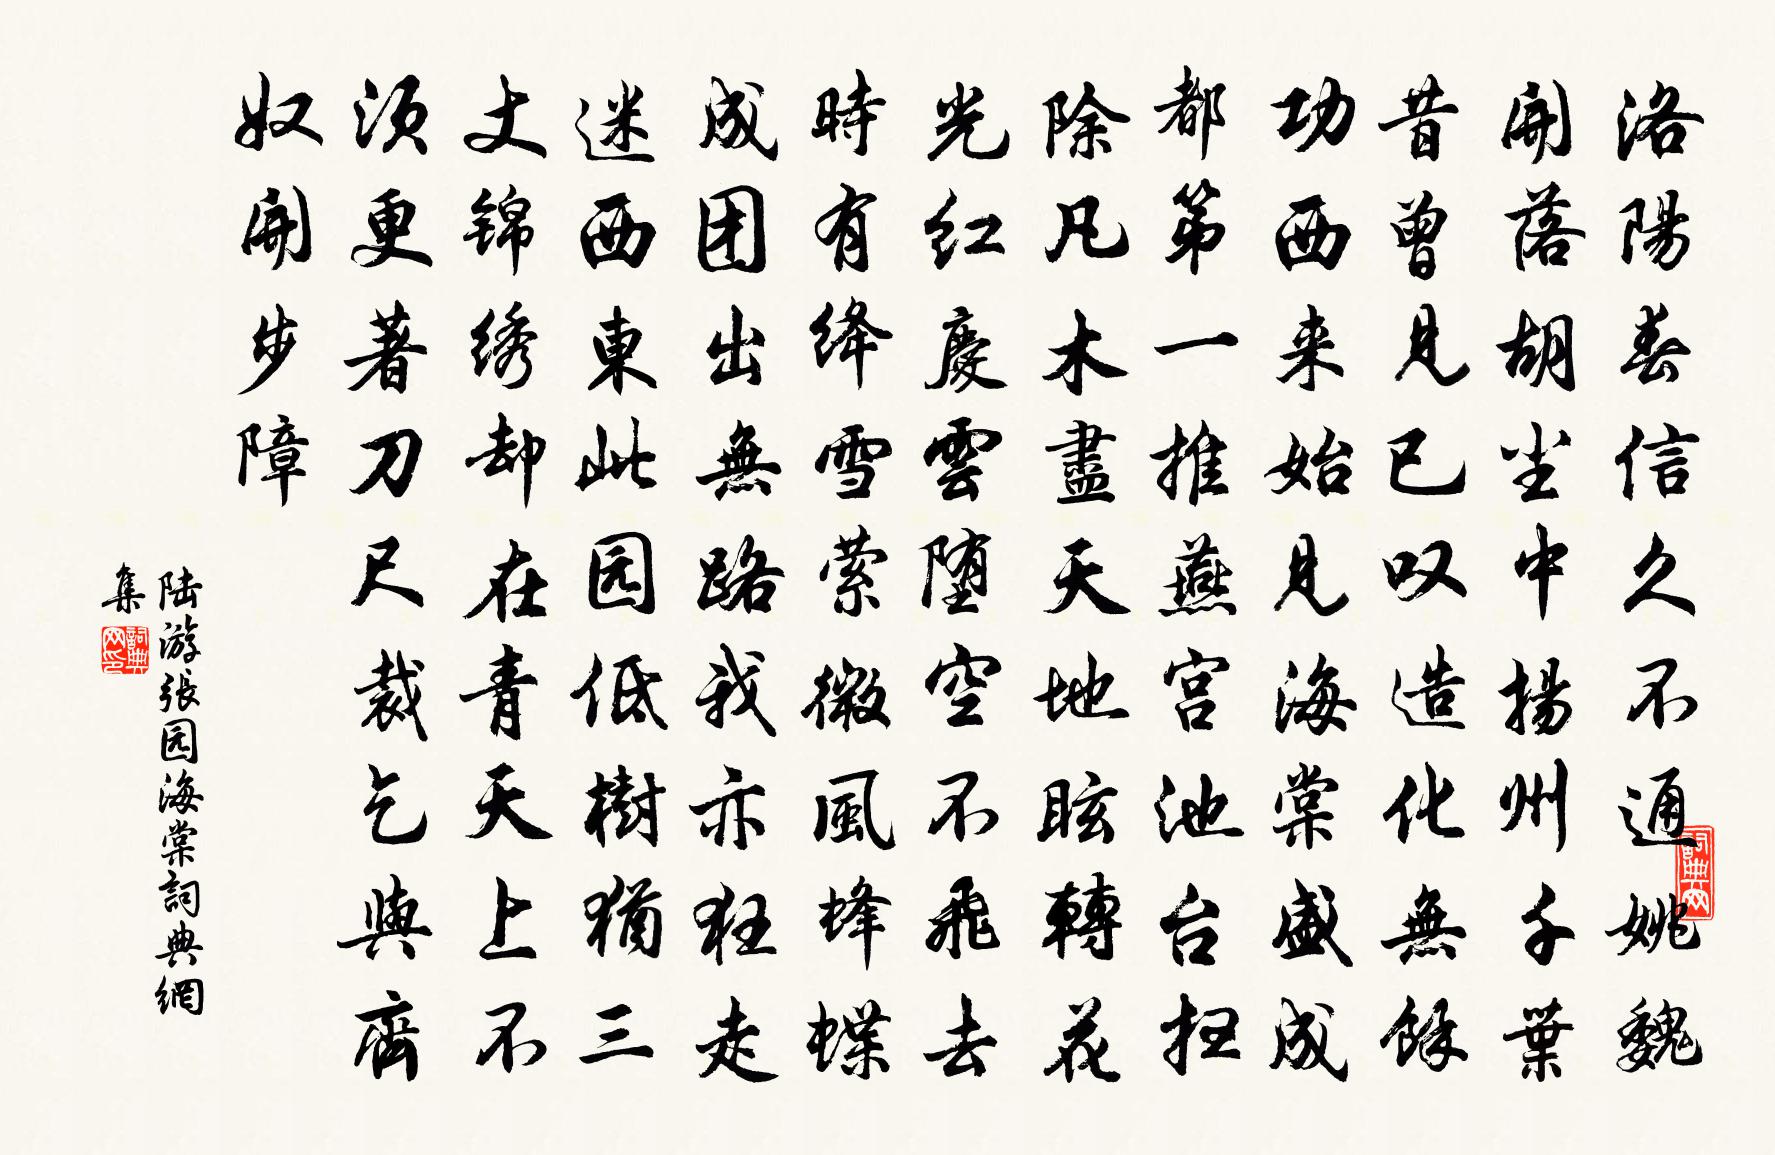 洛陽春信久不通姚魏
開落胡尘中揚州千葉
昔曾見已叹造化無餘
功西来始見海棠盛成
都第一推燕宫池台扫
除凡木盡天地眩轉花
光红慶雲堕空不飛去
時有绛雪萦微風蜂蝶
成团出無路我亦狂走
迷西東此园低樹猶三
丈锦绣却在青天上不
须更著刀尺裁乞與齊
奴開步障
陆游張园海棠詞典網
集
詞典网印
詞典网